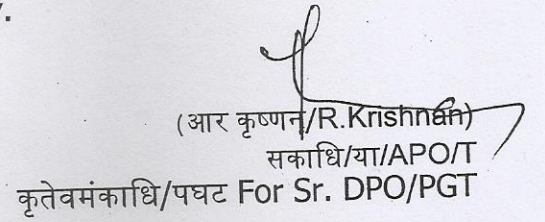 (आर कृष्णन/R.Krishnan)
सकाधि/या/APO/T
कृतेवमंकाधि/पघट For Sr. DPO/PGT